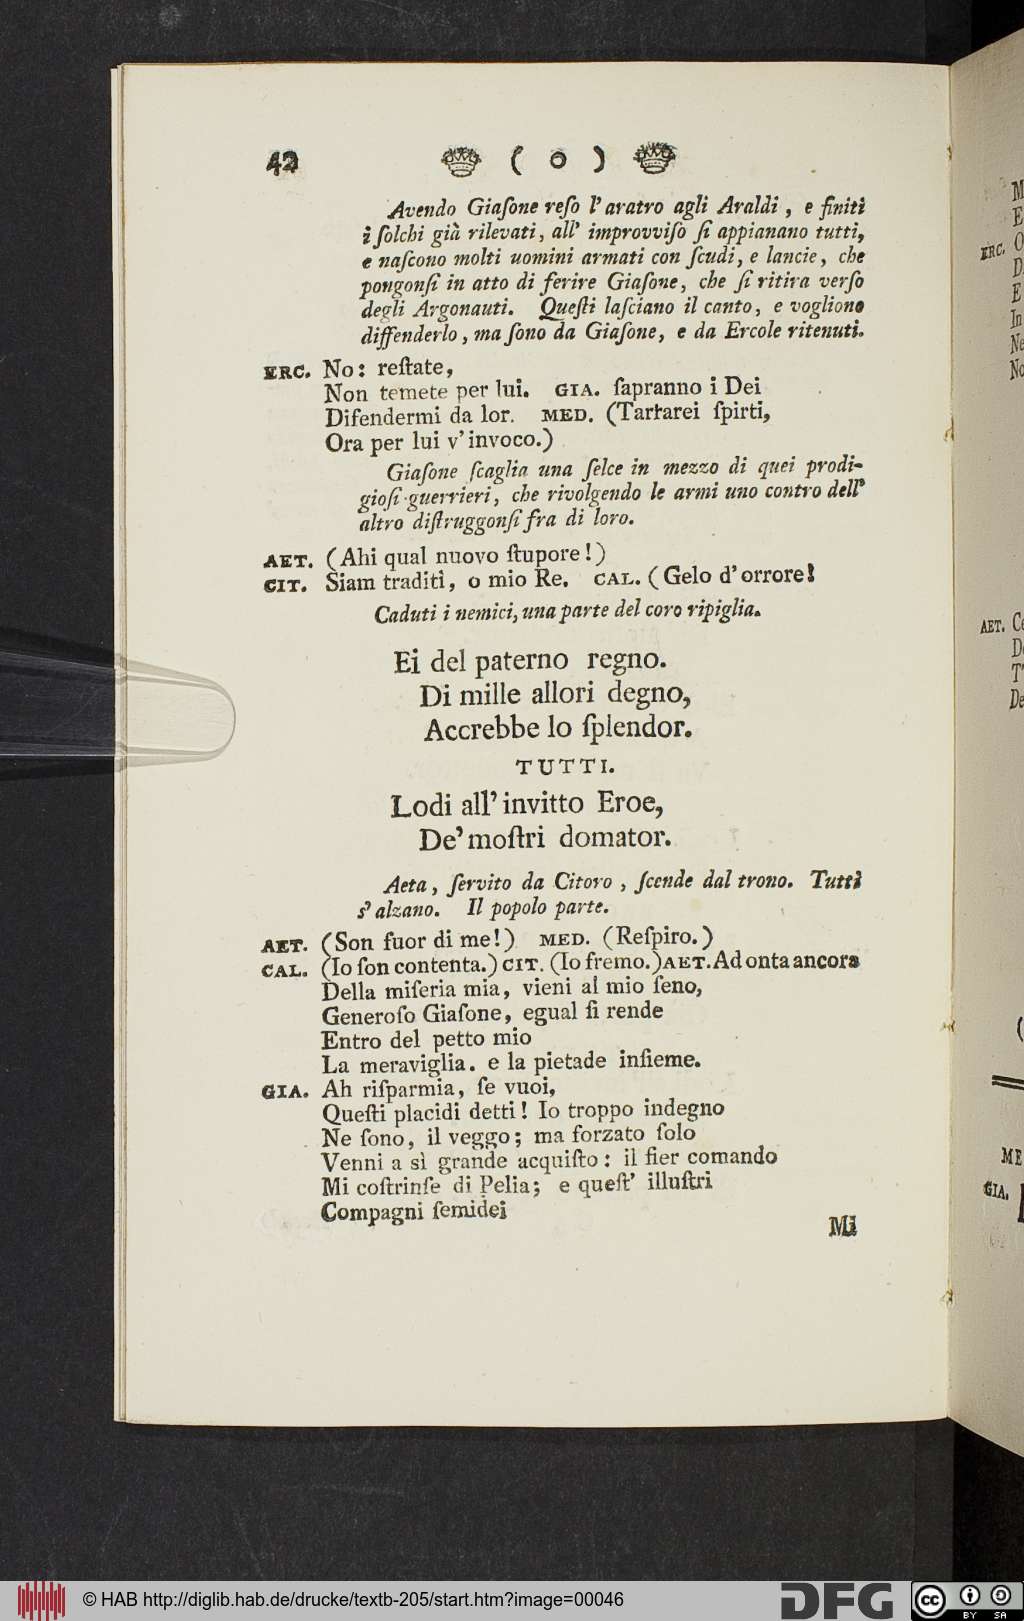 42 ( o )
Avendo Giaſone reſo l'aratro agli Araldi, e finiti
i ſolchi già rilevati, all' improvviſo ſi appianano tutti,
e naſcono molti uomini armati con ſcudi, e lancie, che
pongonſi in atto di ferire Giaſone, che ſi ritira verſo
degli Argonauti. Queſti laſciano il canto, e vogliono
diffenderlo, ma ſono da Giaſone, e da Ercole ritenuti.
ERC. No: reſtate,
Non temete per lui. GIA. ſapranno i Dei
Difendermi da lor. MED. (Tartarei ſpirti,
Ora per lui v'invoco.)
Giaſone ſcaglia una ſelce in mezzo di quei prodi-
gioſi guerrieri, che rivolgendo le armi uno contro dell'
altro diſtruggonſi fra di loro.
AET. (Ahi qual nuovo ſtupore!)
CIT. Siam traditi, o mio Re. CAL. (Gelo d'orrore!
Caduti i nemici, una parte del coro ripiglia.
Ei del paterno regno.
Di mille allori degno,
Accrebbe lo ſplendor.
TUTTI.
Lodi all' invitto Eroe,
De' moſtri domator.
Aeta, ſervito da Citoro, ſcende dal trono. Tutti
s' alzano. Il popolo parte.
AET. (Son fuor di me!) MED. (Reſpiro.)
CAL. (Io ſon contenta.) CIT. (Io fremo.) AET. Ad onta ancora
Della miſeria mia, vieni al mio ſeno,
Generoſo Giaſone, egual ſi rende
Entro del petto mio
La meraviglia. e la pietade inſieme.
GIA. Ah riſparmia, ſe vuoi,
Queſti placidi detti! Io troppo indegno
Ne ſono, il veggo; ma forzato ſolo
Venni a sì grande acquiſto: il fier comando
Mi coſtrinſe di Pelia; e queſt' illuſtri
Compagni ſemidei
Mi
ERC.
AET.
ME
GIA.
© HAB http://diglib.hab.de/drucke/textb-205/start.htm?image=00046
DFG
cc BY SA